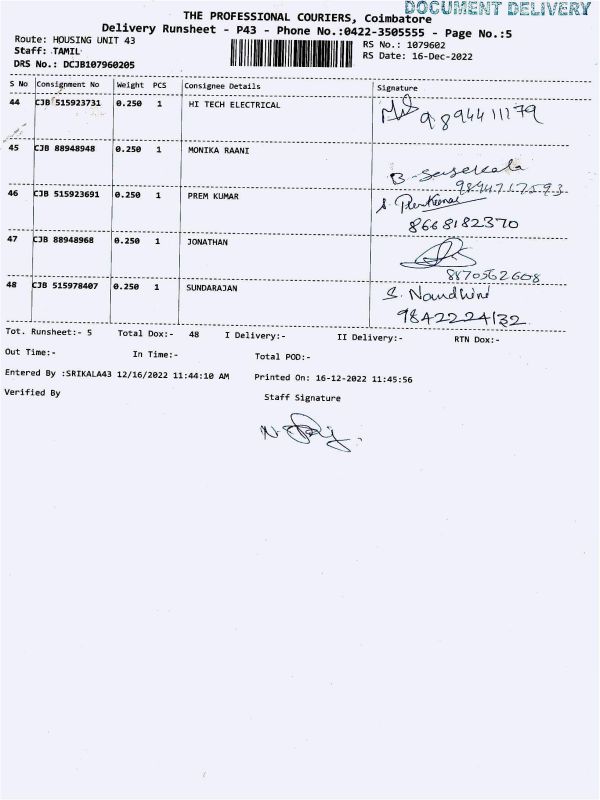 DOCUMENT DELIVERY
THE PROFESSIONAL COURIERS, Coimbatore
Delivery Runsheet - P43 - Phone No.:0422-3505555 - Page No.:5
Route: HOUSING UNIT 43
RS No.: 1079602
Staff: TAMIL
RS Date: 16-Dec-2022
DRS No.: DCJB107960205
S No Consignment No Weight PCS Consignee Details Signature
44 CJB 515923731 0.250 1 HI TECH ELECTRICAL 9894411179
45 CJB 88948948 0.250 1 MONIKA RAANI B. Sasekala
9894717593
46 CJB 515923691 0.250 1 PREM KUMAR S. PremKumar
8668182370
47 CJB 88948968 0.250 1 JONATHAN
8870562608
48 CJB 515978407 0.250 1 SUNDARAJAN S. Nandhini
9842224132
Tot. Runsheet:- 5 Total Dox:- 48 I Delivery:- II Delivery:- RTN Dox:-
Out Time:- In Time:- Total POD:-
Entered By :SRIKALA43 12/16/2022 11:44:10 AM Printed On: 16-12-2022 11:45:56
Verified By Staff Signature